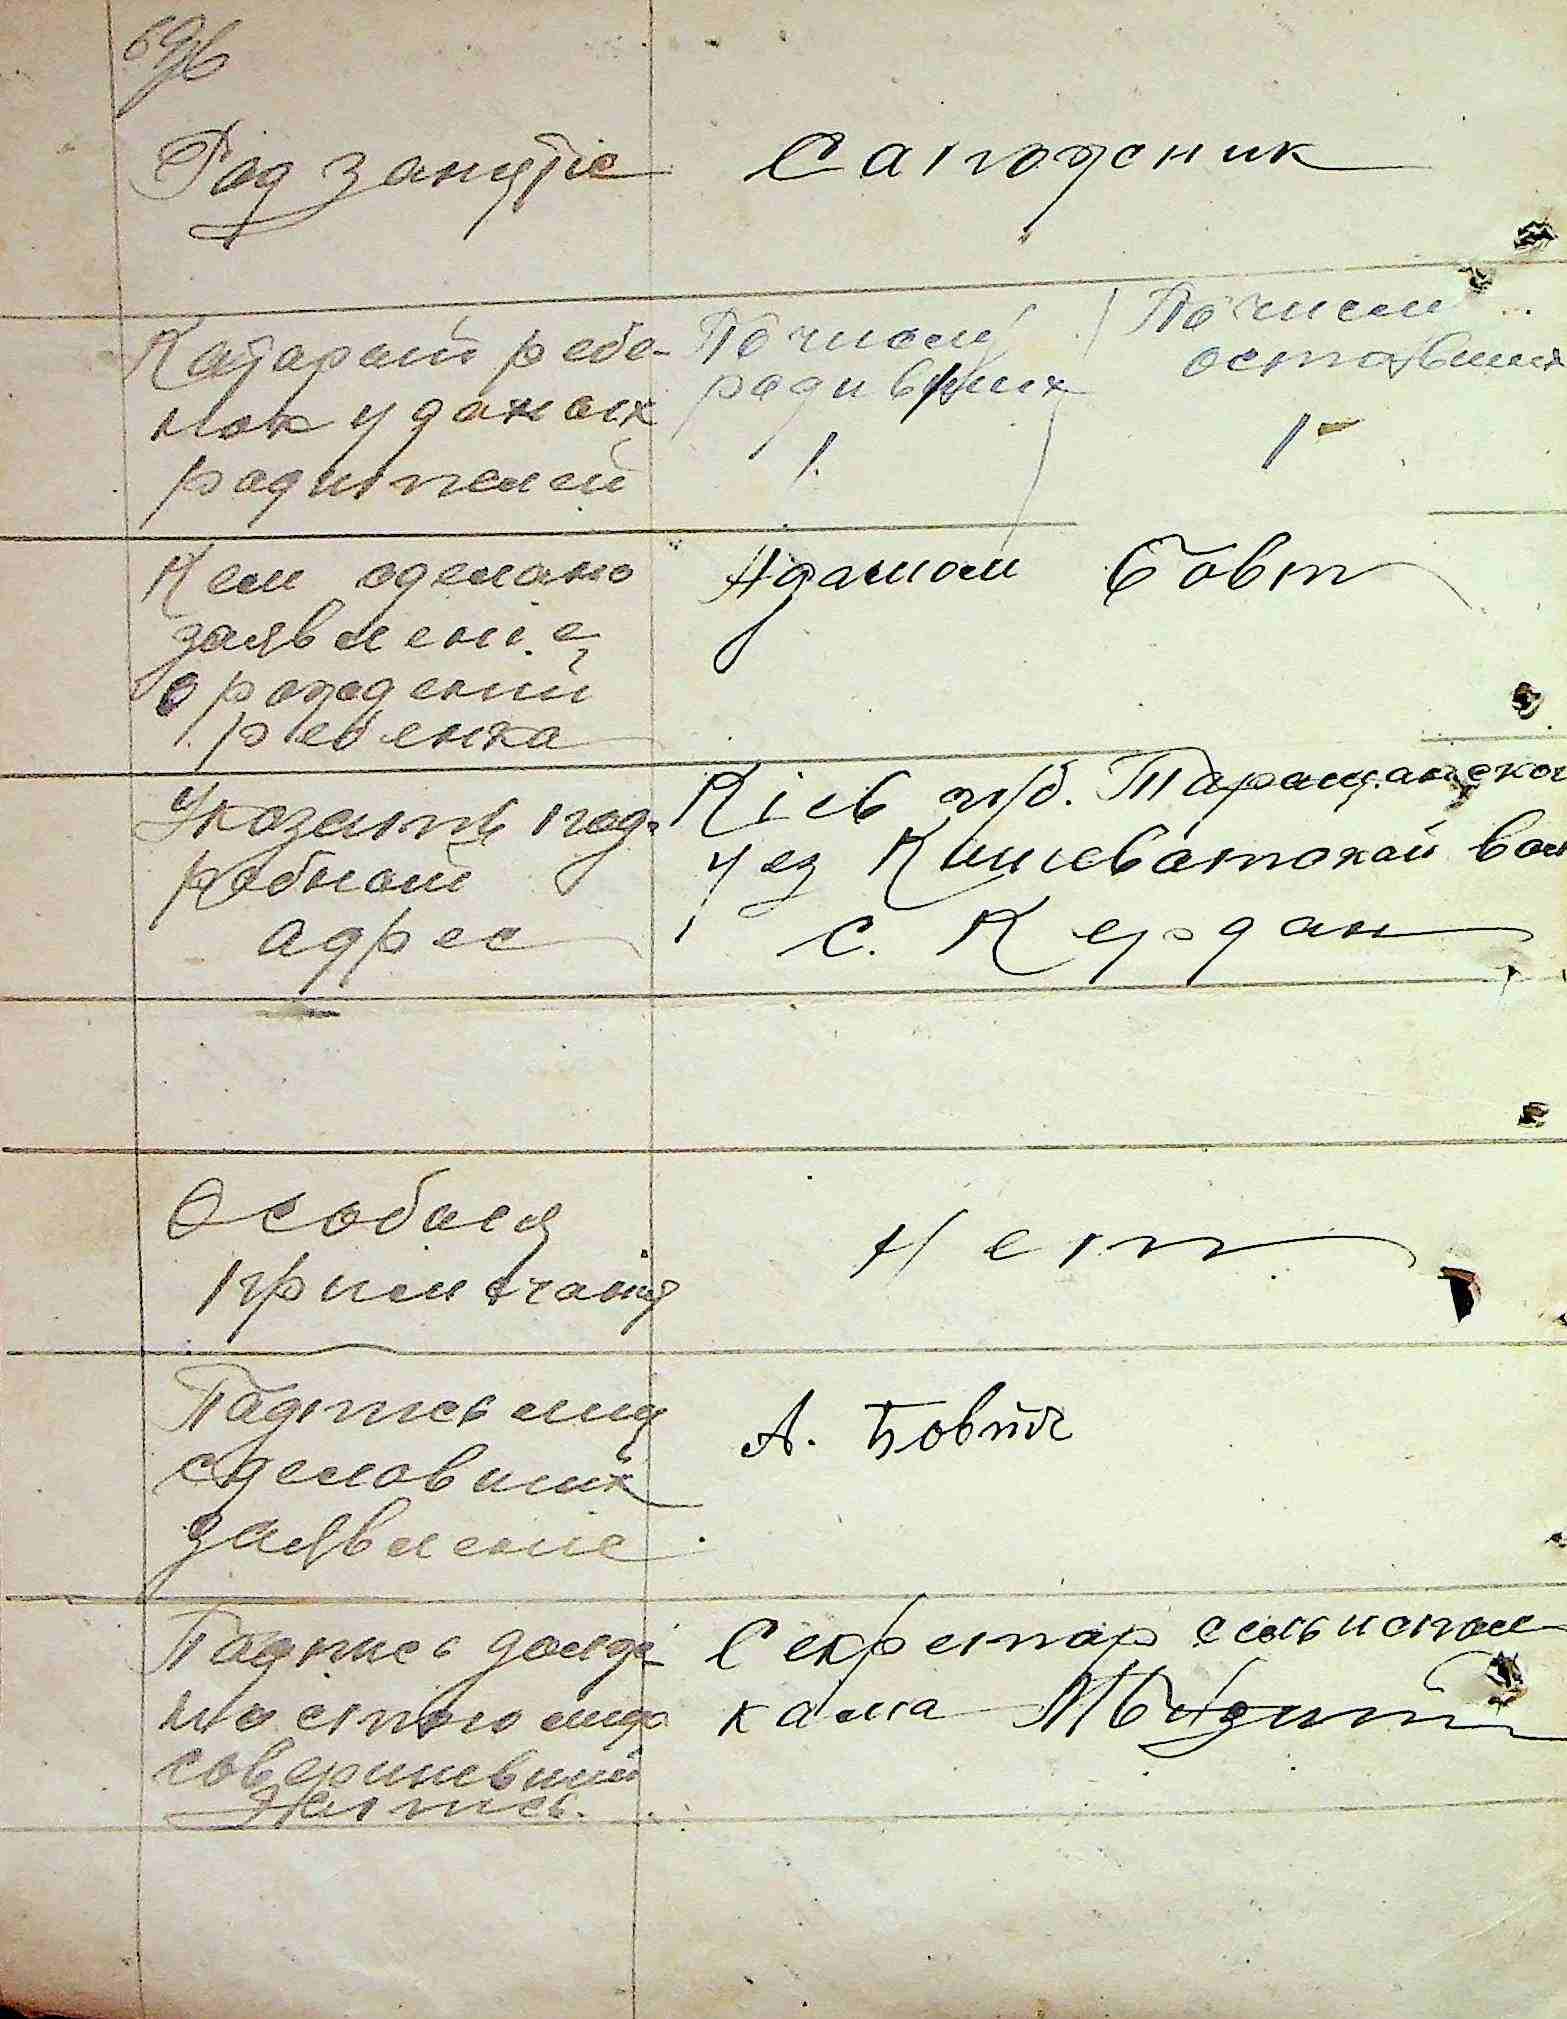 Род занятіе Сапожник
Каторый ребе-
нок у даных
радителей
По числу
родившихся
1.
По числу
оставшихся
1
Кем сделано
заявленіе
о рождений
ребенка
Адамом Бовт
Указать под-
робной
адрес
Кіев губ. Таращанской
уез Кишеватской вол
с. Кердан
Особыя
примечанія
Нет
Падпись лиц
сделавших
заявленіе
А. Бовтъ
Падпись долж-
ностного лица
совершившій
запись.
Секретар сельиспол
кома